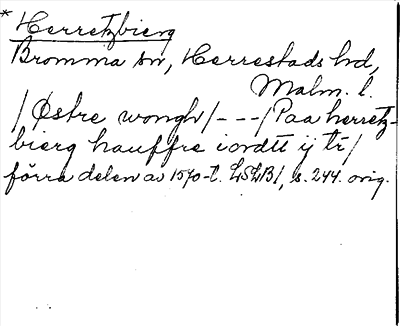 * Herretzbierg
Bromma sn, Herrestads hd,
Malm. l.
/Østre wongh/---/Paa herretz-
bierg hauffre iordtt ij tr/
förra delen av 1570-t. LSLB1, s. 244. orig.